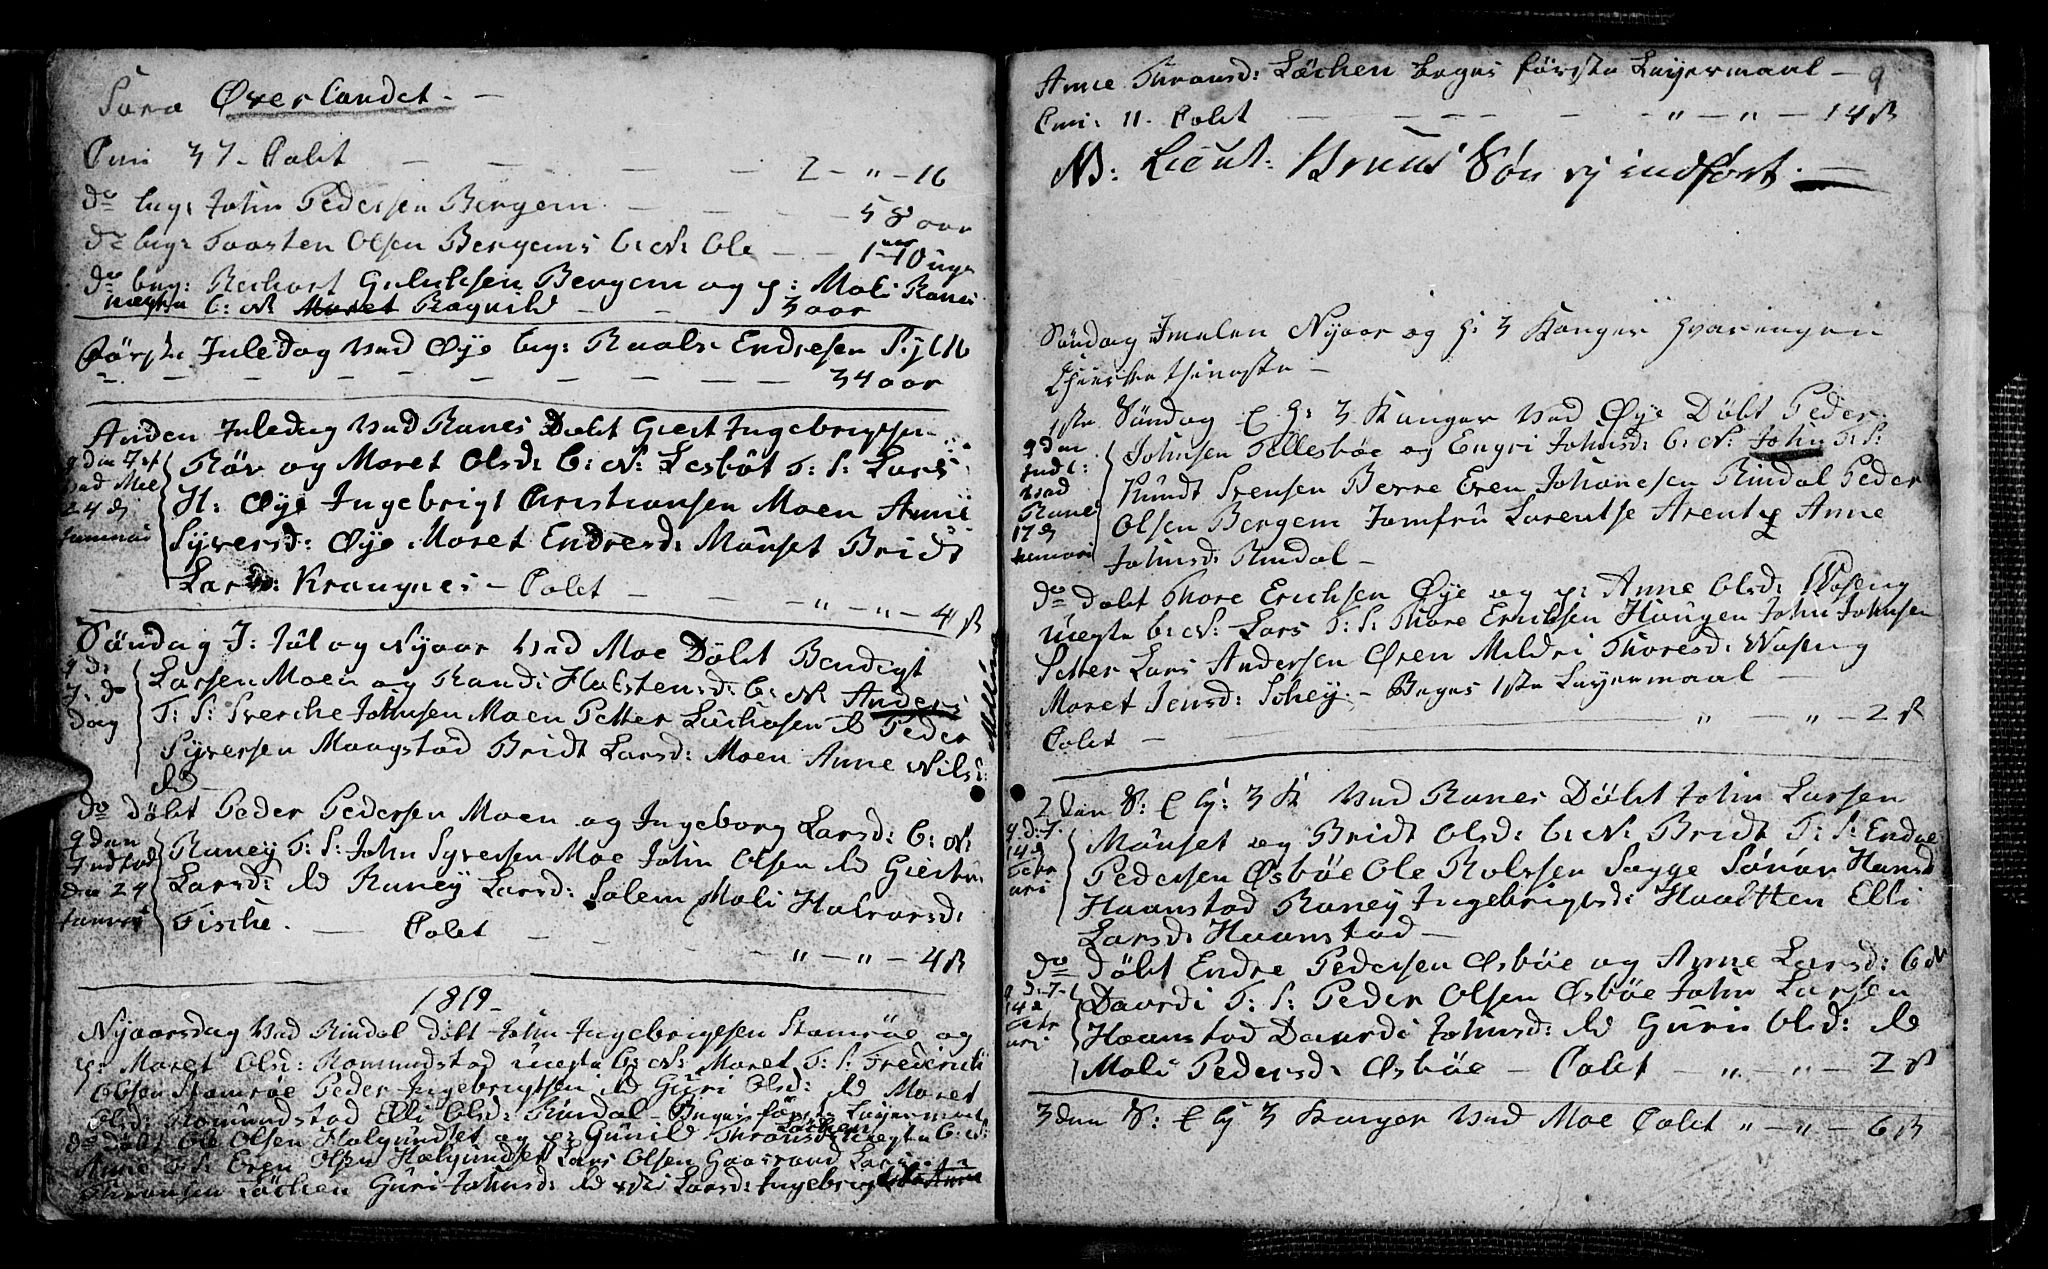 Sara Øverlandet. —
Comi 37. Calet — — — — — 2 - " - 16
do beg: John Pedersen Bergem — — — — 58 aar
do beg: Taasten Olsen Bergems b: N: Ole — — 1 10 uger
do beg: Gulichsen Bergem og p: Mali Ranes
uægte b: N: Maret Ragnild — — 3 aar
Første Juledag ved Øye beg: Endresen
" — — — — — — — — 34 aar
Anden Juledag ved Ranes Døbt Giert Ingebrigtsen
Røv og Maret Olsd: b: N: Lesbet F: S: Lars
H: Øye Ingebrigt Christiansen Moen Anne
Syversd: Øye Maret Endresd: Mønset Bridt
Larsd: Krangnes - Calet — — - " - " - 4 ß
g den
24 d
Januari
Søndag I: Jul og Nyaar ved Moe Døbt Bendigt
Larsen Moen og Rand: Halstensd: b: N: Anders
F: S: Sverche Johnsen Moen Petter do Peder
Syversen Maagstad Bridt Larsd: Moen Anne Nilsd:
do —
g d:
I: do
dag
do Døbt Peder Pedersen Moen og Ingeborg Larsd: b: N:
Raney F: S: John Syversen Moe John Olsen do Giertru
Larsd: do Raney Larsd: Solem Mali Halvorsd:
Fische. — Calet — — — - " - " - 4 ß
g den
den 24
Januari
1819 -
Nyaarsdag ved Rindal døbt John Ingebrigtsen Stomrøe og
p: Maret Olsd: Romundstad uægte b: N: Maret F: S: Frederich
Olsen Stomrøe Peder Ingebrigtsen do Guri Olsd: do Maret
Olsd: Romundstad Elli Olsd: Rindal - Beges første Leyermaal
do Døbt Ole Olsen Halgundset og p: Gunild Thronsd: Løchen uægte b: N:
Anne F: S: Even Olsen Halgundset Lars Olsen Gaasvand Lars
Thronsen Løchen Guri Johnsd: do Larsd: Ingebrigt Anne
Anne Thronsd: Løchen beges første Leyermaal - 9
Comi: 11. Calet — — - - — - " - " - 14 ß
NB: Lieut: Kruus Søn ej indført. —
Søndag Imelen Nyaar og H: 3 Konger hvar ingen
Chierketieneste —
1ste Søndag E H: 3 Konger ved Øye Døbt Peder
Johnsen Tellesbøe og Engri Johnsd: b: N: John F: S:
Knudt Svensen Berre Even Johansen Rindal Peder
Olsen Bergem Jomfru Larentse Arentz Anne
Johnsd: Rindal —
g den
Indl:
ved
Rane
17 d
Januari
do døbt Thore Erichsen Øye og p: Anne Olsd: Waseng
uægte b: N: Lars F: S: Thore Erichsen Haugen John Johnsen
Setter Lars Andersen Øren Mildri Thoresd: Waseng
Maret Jensd: - Beges 1ste Leyermaal —
Calet — — — " — " — 2 ß
2den S: E H: 3 K ved Ranes Døbt John Larsen
Mønset og Bridt Olsd: b: N: Bridt F: S: Endre
Pedersen Øsbøe Ole Rolvsen Sagge Sønør Hansd
Haanstad Raney Ingebrigtsd: Haaltten Elli
Larsd: Haanstad —
g d: I.
14 d
Febr
uri
do Døbt Endre Pedersen Øsbøe og Anne Larsd: b N
Daardi F: S: Peder Olsen Øsbøe John Larsen
Haanstad Daardi Johnsd: do Guri Olsd: do
Mali Pedersd: Øsbøe - Calet - " - " - 2 ß
d: I.
14 d
Febr
uri
3den S: E H 3 Konger ved Moe Calet " - " - 6 ß